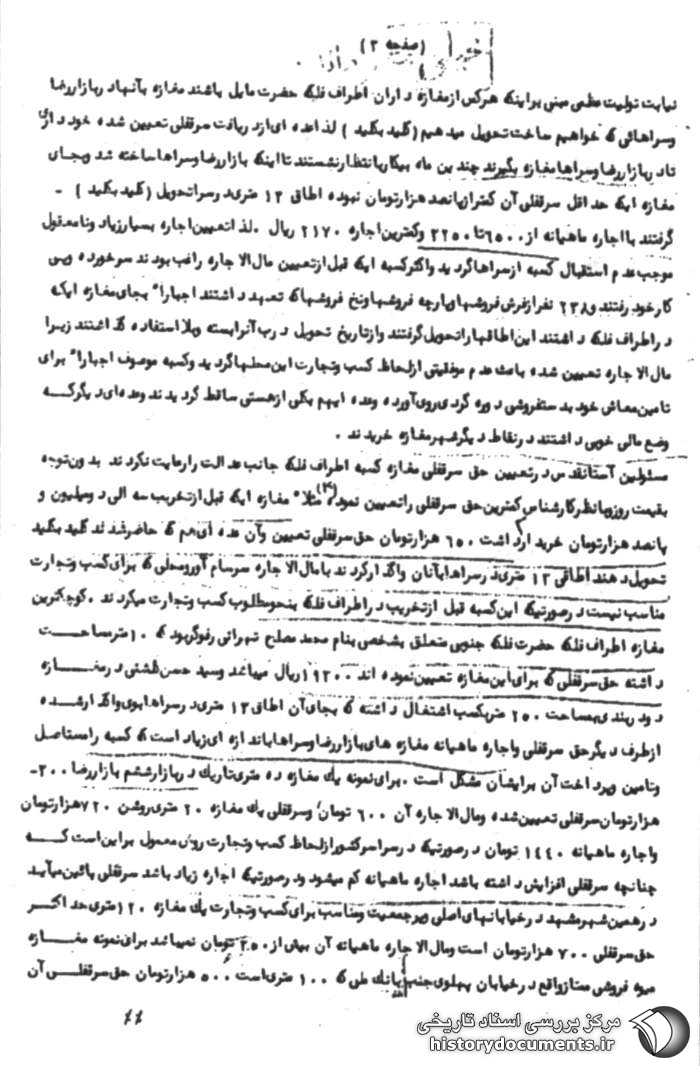 (صفحه ۲)
نیابت تولیت عظمی مبنی براینکه هرکس ازمغازه داران اطراف فلکه حضرت مایل باشند مغازه بآنهاد ربازاررضا
وسراهائی که خواهیم ساخت تحویل میدهیم (کلید بکلید) لذاعده ای ازدریافت سرقفلی تعیین شده خود دا
تاد ربازاررضا وسراها مغازه بگیرند چندین ماه بیکاربانتظارنشستند تا اینکه بازاررضا وسراها ساخته شد وبجای
مغازه ایکه حداقل سرقفلی آن کمترازپانصد هزارتومان نبوده اطاق ۱۲ متری درسراتحویل (کلید بکلید) -
گرفتند با اجاره ماهیانه از ۶۵۰۰ تا ۲۲۵۰ وکمترین اجاره ۲۱۷۰ ریال . لذا تعیین اجاره بسیارزیاد ونامعقول
موجب عدم استقبال کسبه ازسراها گردید واکثرکسبه ایکه قبل ازتعیین مال الاجاره راغب بودند سرخورده وپی
کارخود رفتند و۲۳۸ نفر ازفرش فروشها وپارچه فروشها ونخ فروشها که تعهد داشتند اجباراً بجای مغازه ایکه
دراطراف فلکه داشتند این اطاقها راتحویل گرفتند وازتاریخ تحویل درب آنرابسته وبلااستفاده گذاشتند زیرا
مال الاجاره تعیین شده باعث عدم موفقیتی ازلحاظ کسب وتجارت این محلها گردید وکسبه موصوف اجباراً برای
تامین معاش خود بدستفروشی دوره گردی روی آورده وعده ایهم بکلی ازهستی ساقط گردیدند وعده ای دیگرکه
وضع مالی خوبی داشتند درنقاط دیگرشهرمغازه خریدند .
مسئولین آستانقدس درتعیین حق سرقفلی مغازه کسبه اطراف فلکه جانب عدالت رارعایت نکردند بدون توجه
بقیمت روزوبانظرکارشناس کمترین حق سرقفلی راتعیین نموده مثلاً مغازه ایکه قبل ازتخریب سه الی دومیلیون و
پانصد هزارتومان خریدار داشت ۶۵۰ هزارتومان حق سرقفلی تعیین وآن عده ای هم که حاضرشدند کلید بکلید
تحویل دهند اطاقی ۱۲ متری درسراها بآنان واگذار کردند با مال الاجاره سرسام آورومحلی که برای کسب وتجارت
مناسب نیست درصورتیکه این کسبه قبل ازتخریب دراطراف فلکه بنحومطلوب کسب وتجارت میکردند . کوچکترین
مغازه اطراف فلکه حضرت فلکه جنوبی متعلق بشخصی بنام محمد مصلح تهرانی رفوگربود که ۱۰ مترمساحت
داشته حق سرقفلی که برای این مغازه تعیین نموده اند ۱۹۲۰۰ ریال میباشد وسید حسن درمغازه
دودربندی بمساحت ۲۵۰ مترکسب اشتغال داشته که بجای آن اطاق ۱۲ متری درسراها بوی واگذارشده
ازطرف دیگرحق سرقفلی واجاره ماهیانه مغازه های بازاررضا وسراها باندازه ای زیاد است که کسبه رامستاصل
وتامین وپرداخت آن برایشان مشکل است . برای نمونه یك مغازه ده متری تاریك دربازارششم بازاررضا ۲۰۰-
هزارتومان سرقفلی تعیین شده ومال الاجاره آن ۶۰۰ تومان وسرقفلی یك مغازه ۲۰ متری روشن ۷۲۰ هزارتومان
واجاره ماهیانه ۱۴۴۰ تومان درصورتیکه درسراسرکشورازلحاظ کسب وتجارت روش معمول براین است که
چنانچه سرقفلی افزایش داشته باشد اجاره ماهیانه کم میشود ودرصورتیکه اجاره زیاد باشد سرقفلی پائین میآید
درهمین شهرمشهد درخیابانهای اصلی وپرجمعیت ومناسب برای کسب وتجارت یك مغازه ۱۲۰ متری حداکثر
حق سرقفلی ۷۰۰ هزارتومان است ومال الاجاره ماهیانه آن بیش از ۲۵۰ تومان نمیباشد برای نمونه مغازه
میوه فروشی ممتازواقع درخیابان پهلوی جنب بانك ملی که ۱۰۰ متری است ۵۰۰ هزارتومان حق سرقفلی آن
مرکز بررسی اسناد تاریخی
historydocuments.ir